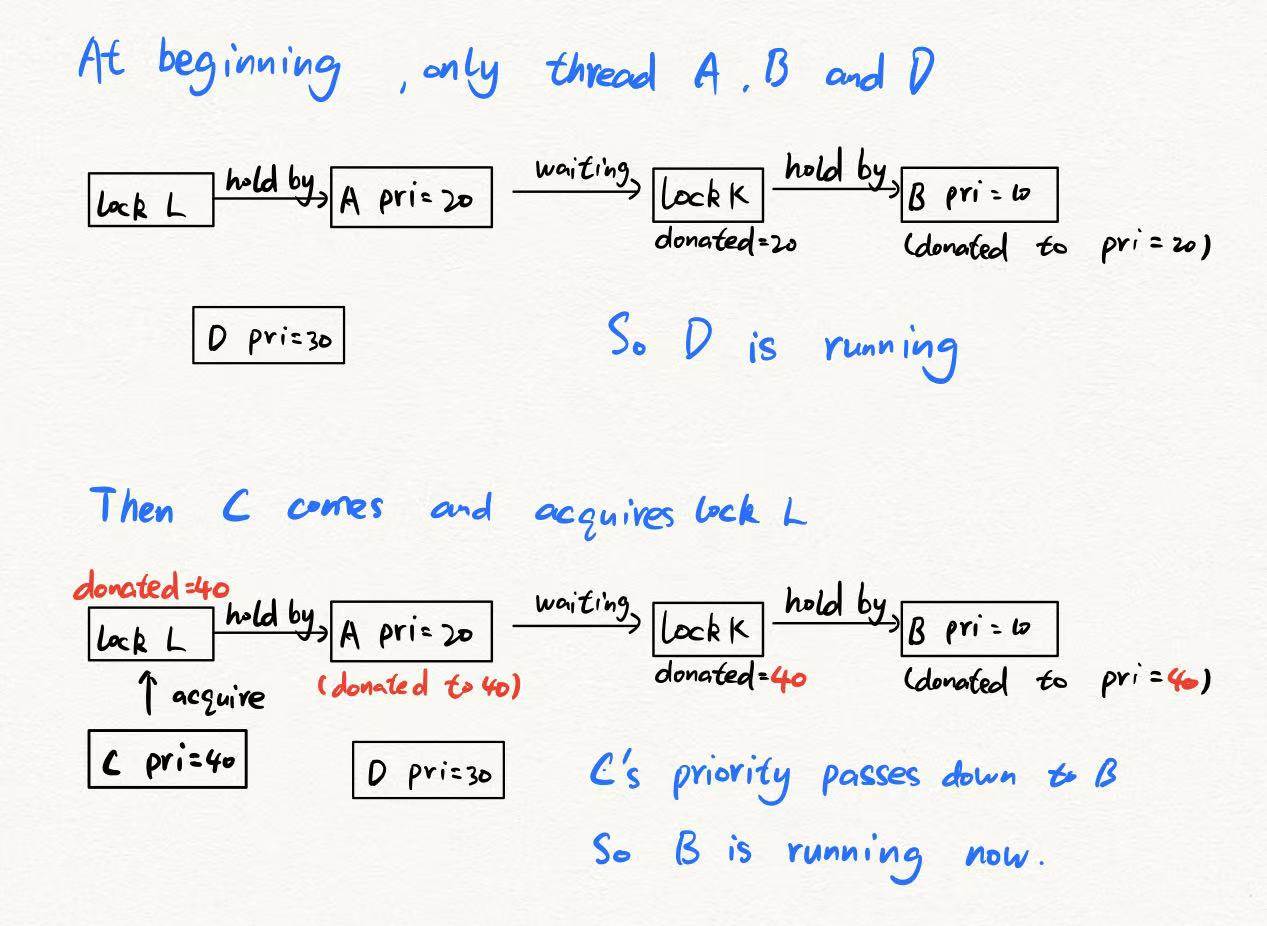 At beginning , only thread A, B and D
lock L
hold by
A pri=20
waiting
lock K
hold by
B pri=10
donated=20
(donated to pri=20)
D pri=30
So D is running
Then C comes and acquires lock L
donated=40
lock L
hold by
A pri=20
waiting
lock K
hold by
B pri=10
(donated to 40)
donated=40
(donated to pri=40)
acquire
C pri=40
D pri=30
C's priority passes down to B
So B is running now.